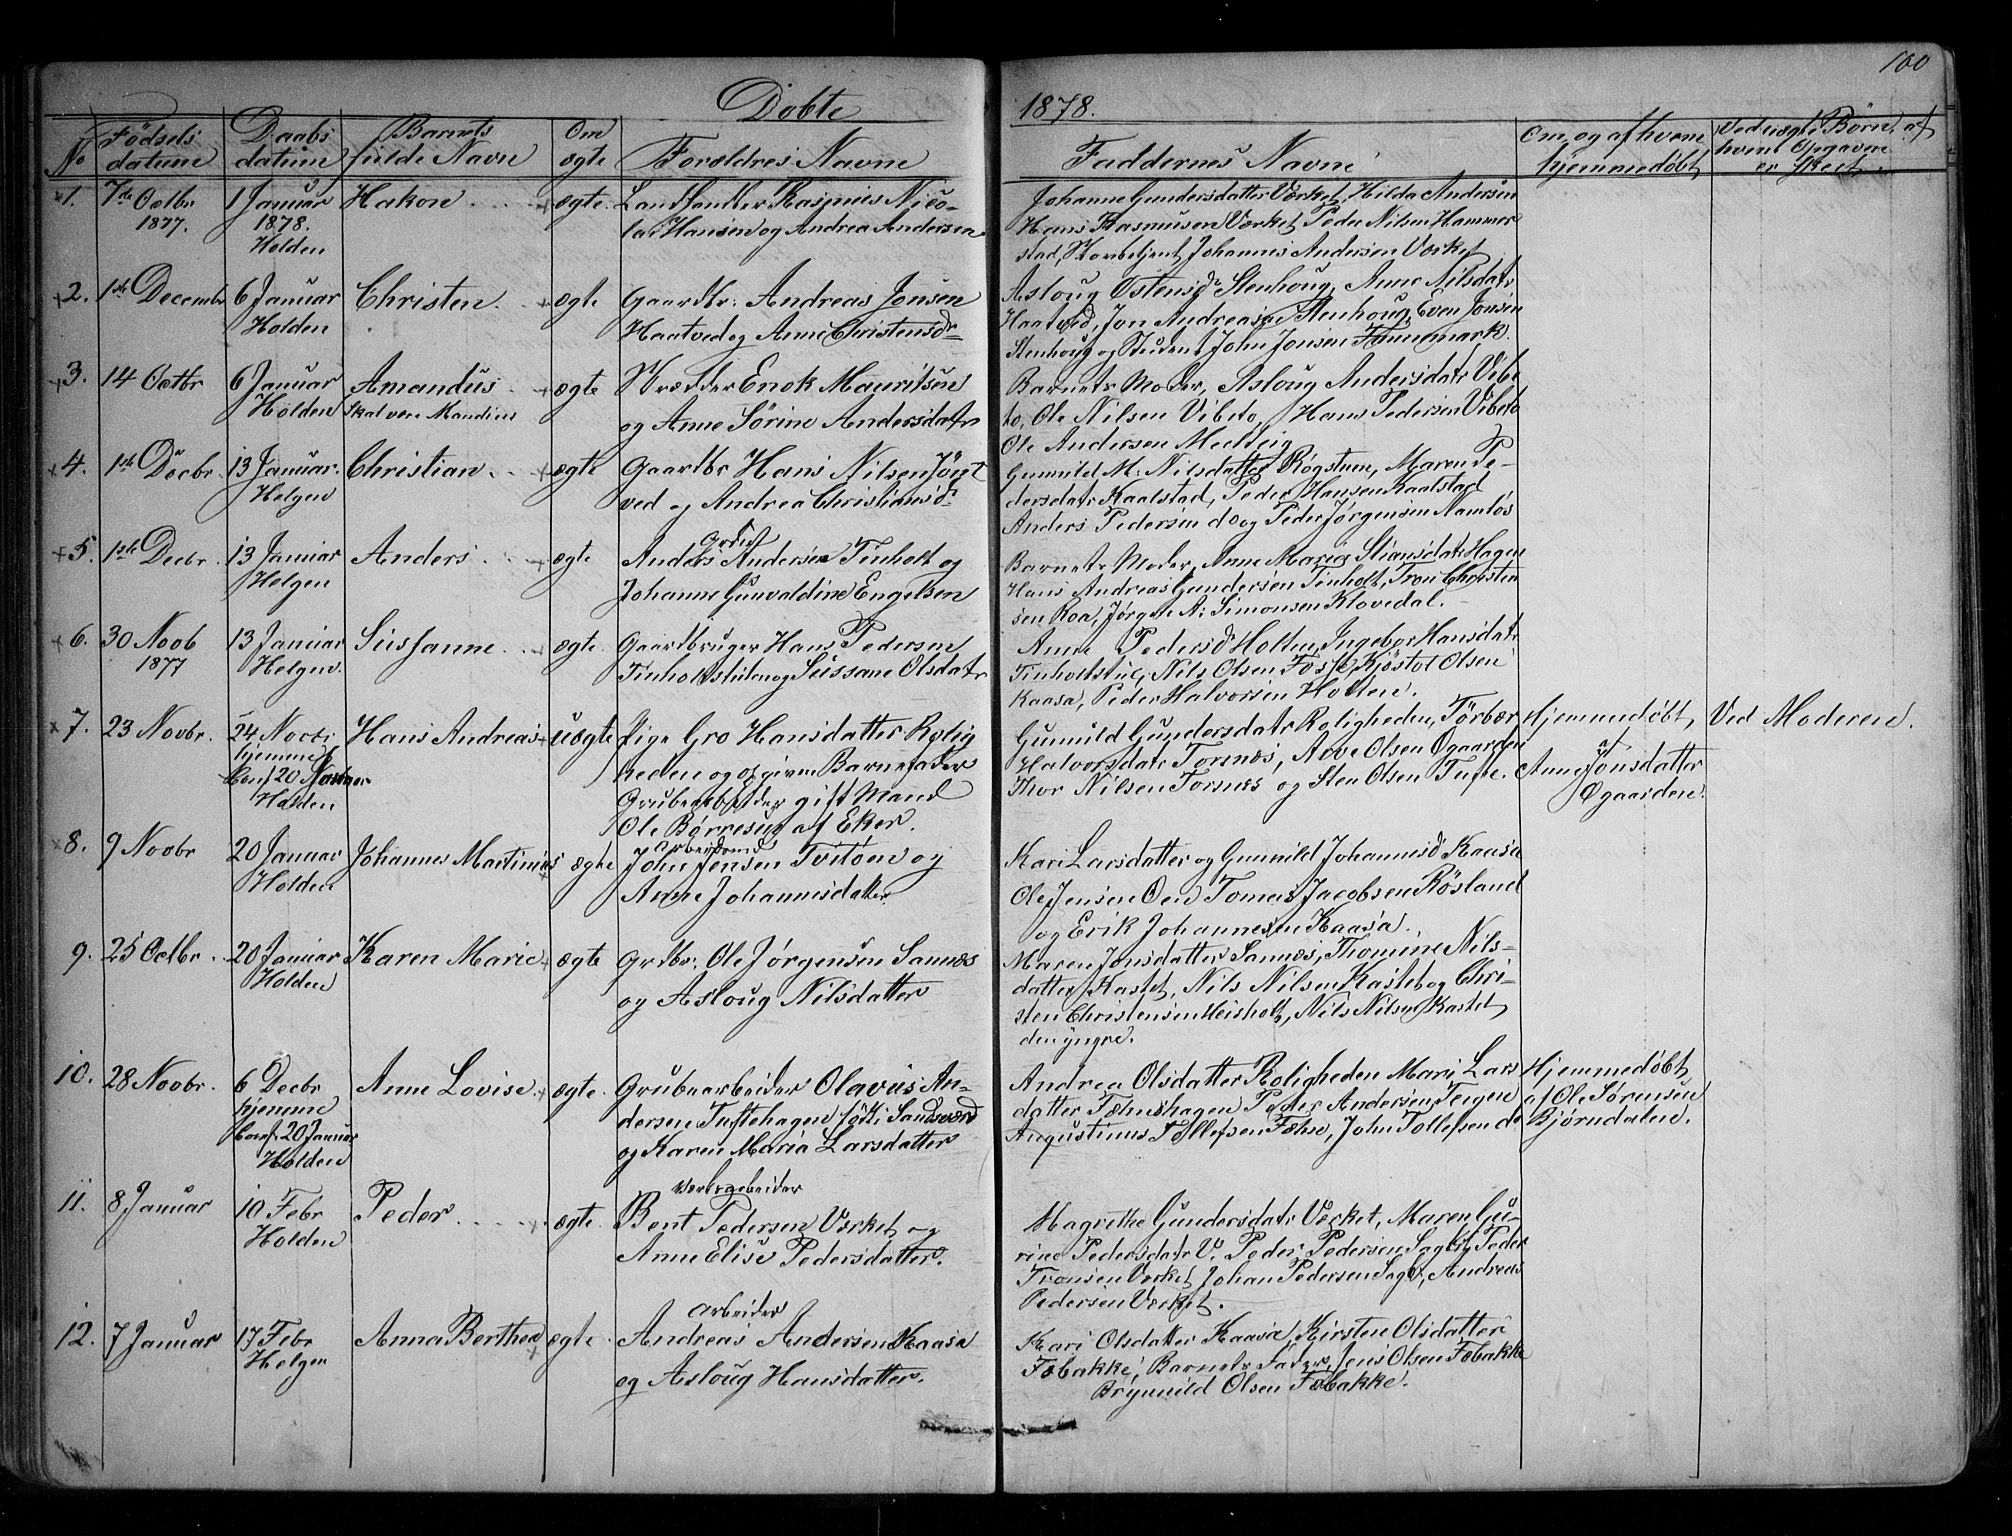 100
Døbte 1878.
No
Fødsels datum
Daabs datum
Barnets fulde Navn
Om ægte
Forældres Navne
Faddernes Navne
Om og af hvem hjemmedøbt
Ved uægte Børn, af hvem Opgaven er skeet.
1. 7de Octbr 1877. 1 Januar 1878. Holden Hakon ægte. Landhandler Rasmus Nico-
lai Hansen og Andrea Andersen
Johanne Gundersdatter Værket, Hilda Andersen
Hans Rasmusen Værket, Peder Nilsen Hammer
stad, Johannes Andersen Værket
2. 1ste Decembr 6 Januar Holden Christen ægte Gaardbr: Andreas Jonsen
Haatved og Anne Christensdr
Asloug Østensdr Stenhoug, Anne Nilsdatr
Haatved, Jon Andreasen Stenhoug, Even Jonsen
Stenhoug og Student John Jonsen Finnemark.
3. 14 Octbr 6 Januar Holden Amandus ægte Skrædder Enok Mauritsen
skal være Mandius
og Anne Sørine Andersdatr
Barnets Moder, Asloug Andersdatr Vibe
to, Ole Nilsen Vibeto, Hans Pedersen Vibeto
Ole Andersen
4. 1ste Decbr 13 Januar. Helgen Christian ægte Gaardbr Hans Nilsen
ved og Andrea Christiansdr
Gunnild M: Nilsdatter Rogstum, Maren Pe-
dersdatr Kaalstad, Peder Hansen Kaalstad
Anders Pedersen do og Peder Jørgensen Namløs
5. 1ste Decbr 13 Januar Helgen Anders ægte Anders Andersen Tinholt og
Johanne Gunvaldine Engelsen
Barnets Moder, Anne Maria Stiansdatr Hagen
Hans Andreas Gundersen Tinholt, Tron Christen
sen Roa, Jørgen A: Simonsen Klovedal.
6. 30 Novb 1877 13 Januar Helgen. Sussanne ægte. Gaardbruger Hans Pedersen
Tinholtstulen og Sussane Olsdatr
Anne Pedersdr Holten, Ingebor Hansdatr
Tinholtstul, Nils Olsen Fosse, Kjøstol Olsen
Kaasa, Peder Halvorsen Holten.
7. 23 Novbr. 24 Novbr hjemme Conf. 20 Januar Holden Hans Andreas uægte Pige Gro Hansdatter Rolig
heden og opgiven Barnefader
Grubearbeider gift Mand
Ole Børresen af Eker.
Gunnild Gundersdatr Roligheden, Torbør
Halvorsdatr Tornæs, Arve Olsen Øgaarden
Thor Nilsen Tornæs og Sten Olsen Tufte.
Hjemmedøbt, af
Anne Jonsdatter
Øgaarden.
Ved Moderen.
8. 9 Novbr 20 Januar Holden Johannes Martinius ægte Arbeidsmd
John Jensen Tvitøen og
Anne Johannesdatter
Kari Larsdatter og Gunnild Johannesdr Kaasa
Ole Jensen Oen Tomas Jacobsen Røsland
og Erik Johannesen Kaasa.
9. 25 Octbr. 20 Januar Holden Karen Marie ægte Grdbr: Ole Jørgensen Sannæs
og Asloug Nilsdatter
Maren Jonsdatter Sannæs, Thomine Nils-
datter Kastet, Nils Nilsen Kastet og Chri-
sten Christensen Meisholt, Nils Nilsen Kastet
den yngre.
10. 28 Novbr. 6 Decbr hjemme Conf. 20 Januar Holden Anne Lovise. ægte. Grubearbeider Olavus An-
dersen Tuftehagen født i Sandsværd
og Karen Maria Larsdatter
Andrea Olsdatter Roligheden Mari Lars
datter Fæhnshagen Peter Andersen Teigen
Augustinus Tollefsen Fæhn, John Tollefsen do
Hjemmedøbt
af Ole Sørensen
Bjørndalen.
11. 8 Januar 10 Febr Holden Peder ægte. Værksarbeider
Bent Pedersen Værket og
Anne Elise Pedersdatter.
Magrethe Gundersdatr Værket, Maren Gu-
rine Pedersdatr V. Peder Pedersen Sagby, Peder
Tronsen Værket Johan Pedersen Sagb, Andreas
Pedersen Værket.
12. 7 Januar 17 Febr Helgen Anna Berthea ægte Arbeider
Andreas Andersen Kaasa
og Asloug Hansdatter.
Kari Olsdatter Kaasa, Kirsten Olsdatter
Fæbakke, Barnets Fader, Jens Olsen Fæbakke
Brynnild Olsen Fæbakke.